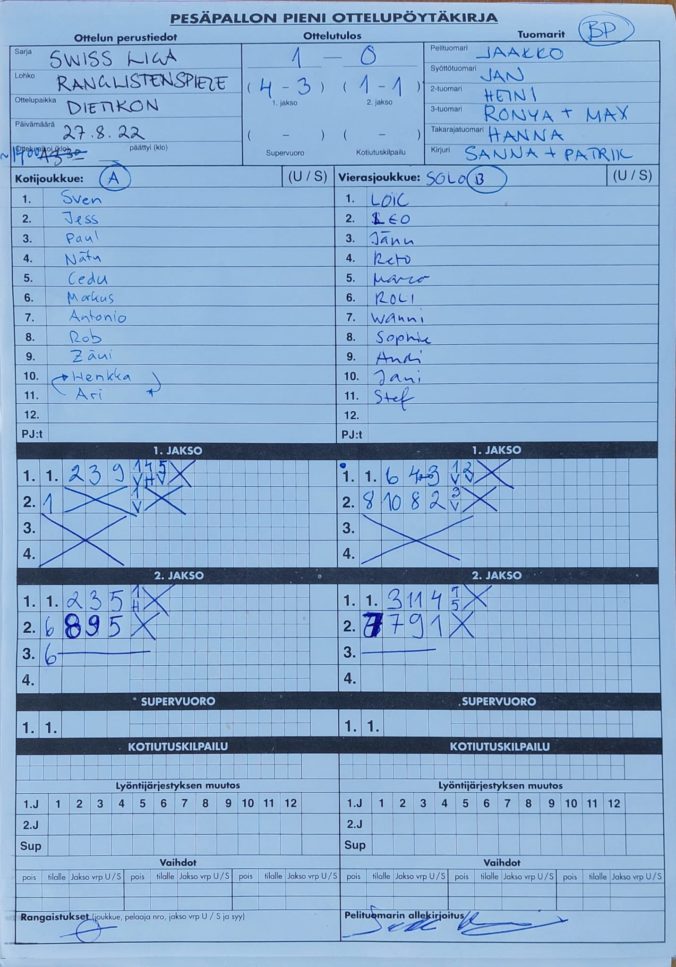 PESÄPALLON PIENI OTTELUPÖYTÄKIRJA
Ottelun perustiedot Ottelutulos Tuomarit BP
Sarja SWISS LIGA 1 — 0 Pelituomari JAAKKO
Lohko RANGLISTENSPIELE ( 4 - 3 ) ( 1 - 1 ) Syöttötuomari JAN
1. jakso 2. jakso
Ottelupaikka DIETIKON 2-tuomari HEINI
Päivämäärä 27.8.22 ( - ) ( - ) 3-tuomari RONYA + MAX
Takarajatuomari HANNA
päättyi (klo) Supervuoro Kotiutuskilpailu Kirjuri SANNA + PATRIK
Kotijoukkue: A (U / S) Vierasjoukkue: SOLO B (U / S)
1. Sven 1. LOIC
2. Jess 2. LEO
3. Paul 3. Jänu
4. Nätu 4. Reto
5. Cedu 5. Marco
6. Markus 6. ROLI
7. Antonio 7. Wanni
8. Rob 8. Sophie
9. Zäni 9. Andi
10. Henkka 10. Jani
11. Ari 11. Stef
12. 12.
PJ:t PJ:t
1. JAKSO 1. JAKSO
1. 1. 2 3 9 1. 1. 6 4
2. 1 2. 8 10 8 2
3. 3.
4. 4.
2. JAKSO 2. JAKSO
1. 1. 2 3 5 1. 1. 3 11 4
2. 6 8 9 5 2. 7 7 9 1
3. 6 3.
4. 4.
SUPERVUORO SUPERVUORO
1. 1. 1. 1.
KOTIUTUSKILPAILU KOTIUTUSKILPAILU
Lyöntijärjestyksen muutos Lyöntijärjestyksen muutos
1.J 1 2 3 4 5 6 7 8 9 10 11 12 1.J 1 2 3 4 5 6 7 8 9 10 11 12
2.J 2.J
Sup Sup
Vaihdot Vaihdot
pois tilalle Jakso vrp U / S pois tilalle Jakso vrp U / S pois tilalle Jakso vrp U / S pois tilalle Jakso vrp U / S pois tilalle Jakso vrp U / S pois tilalle Jakso vrp U / S
Rangaistukset (joukkue, pelaaja nro, jakso vrp U / S ja syy) Pelituomarin allekirjoitus